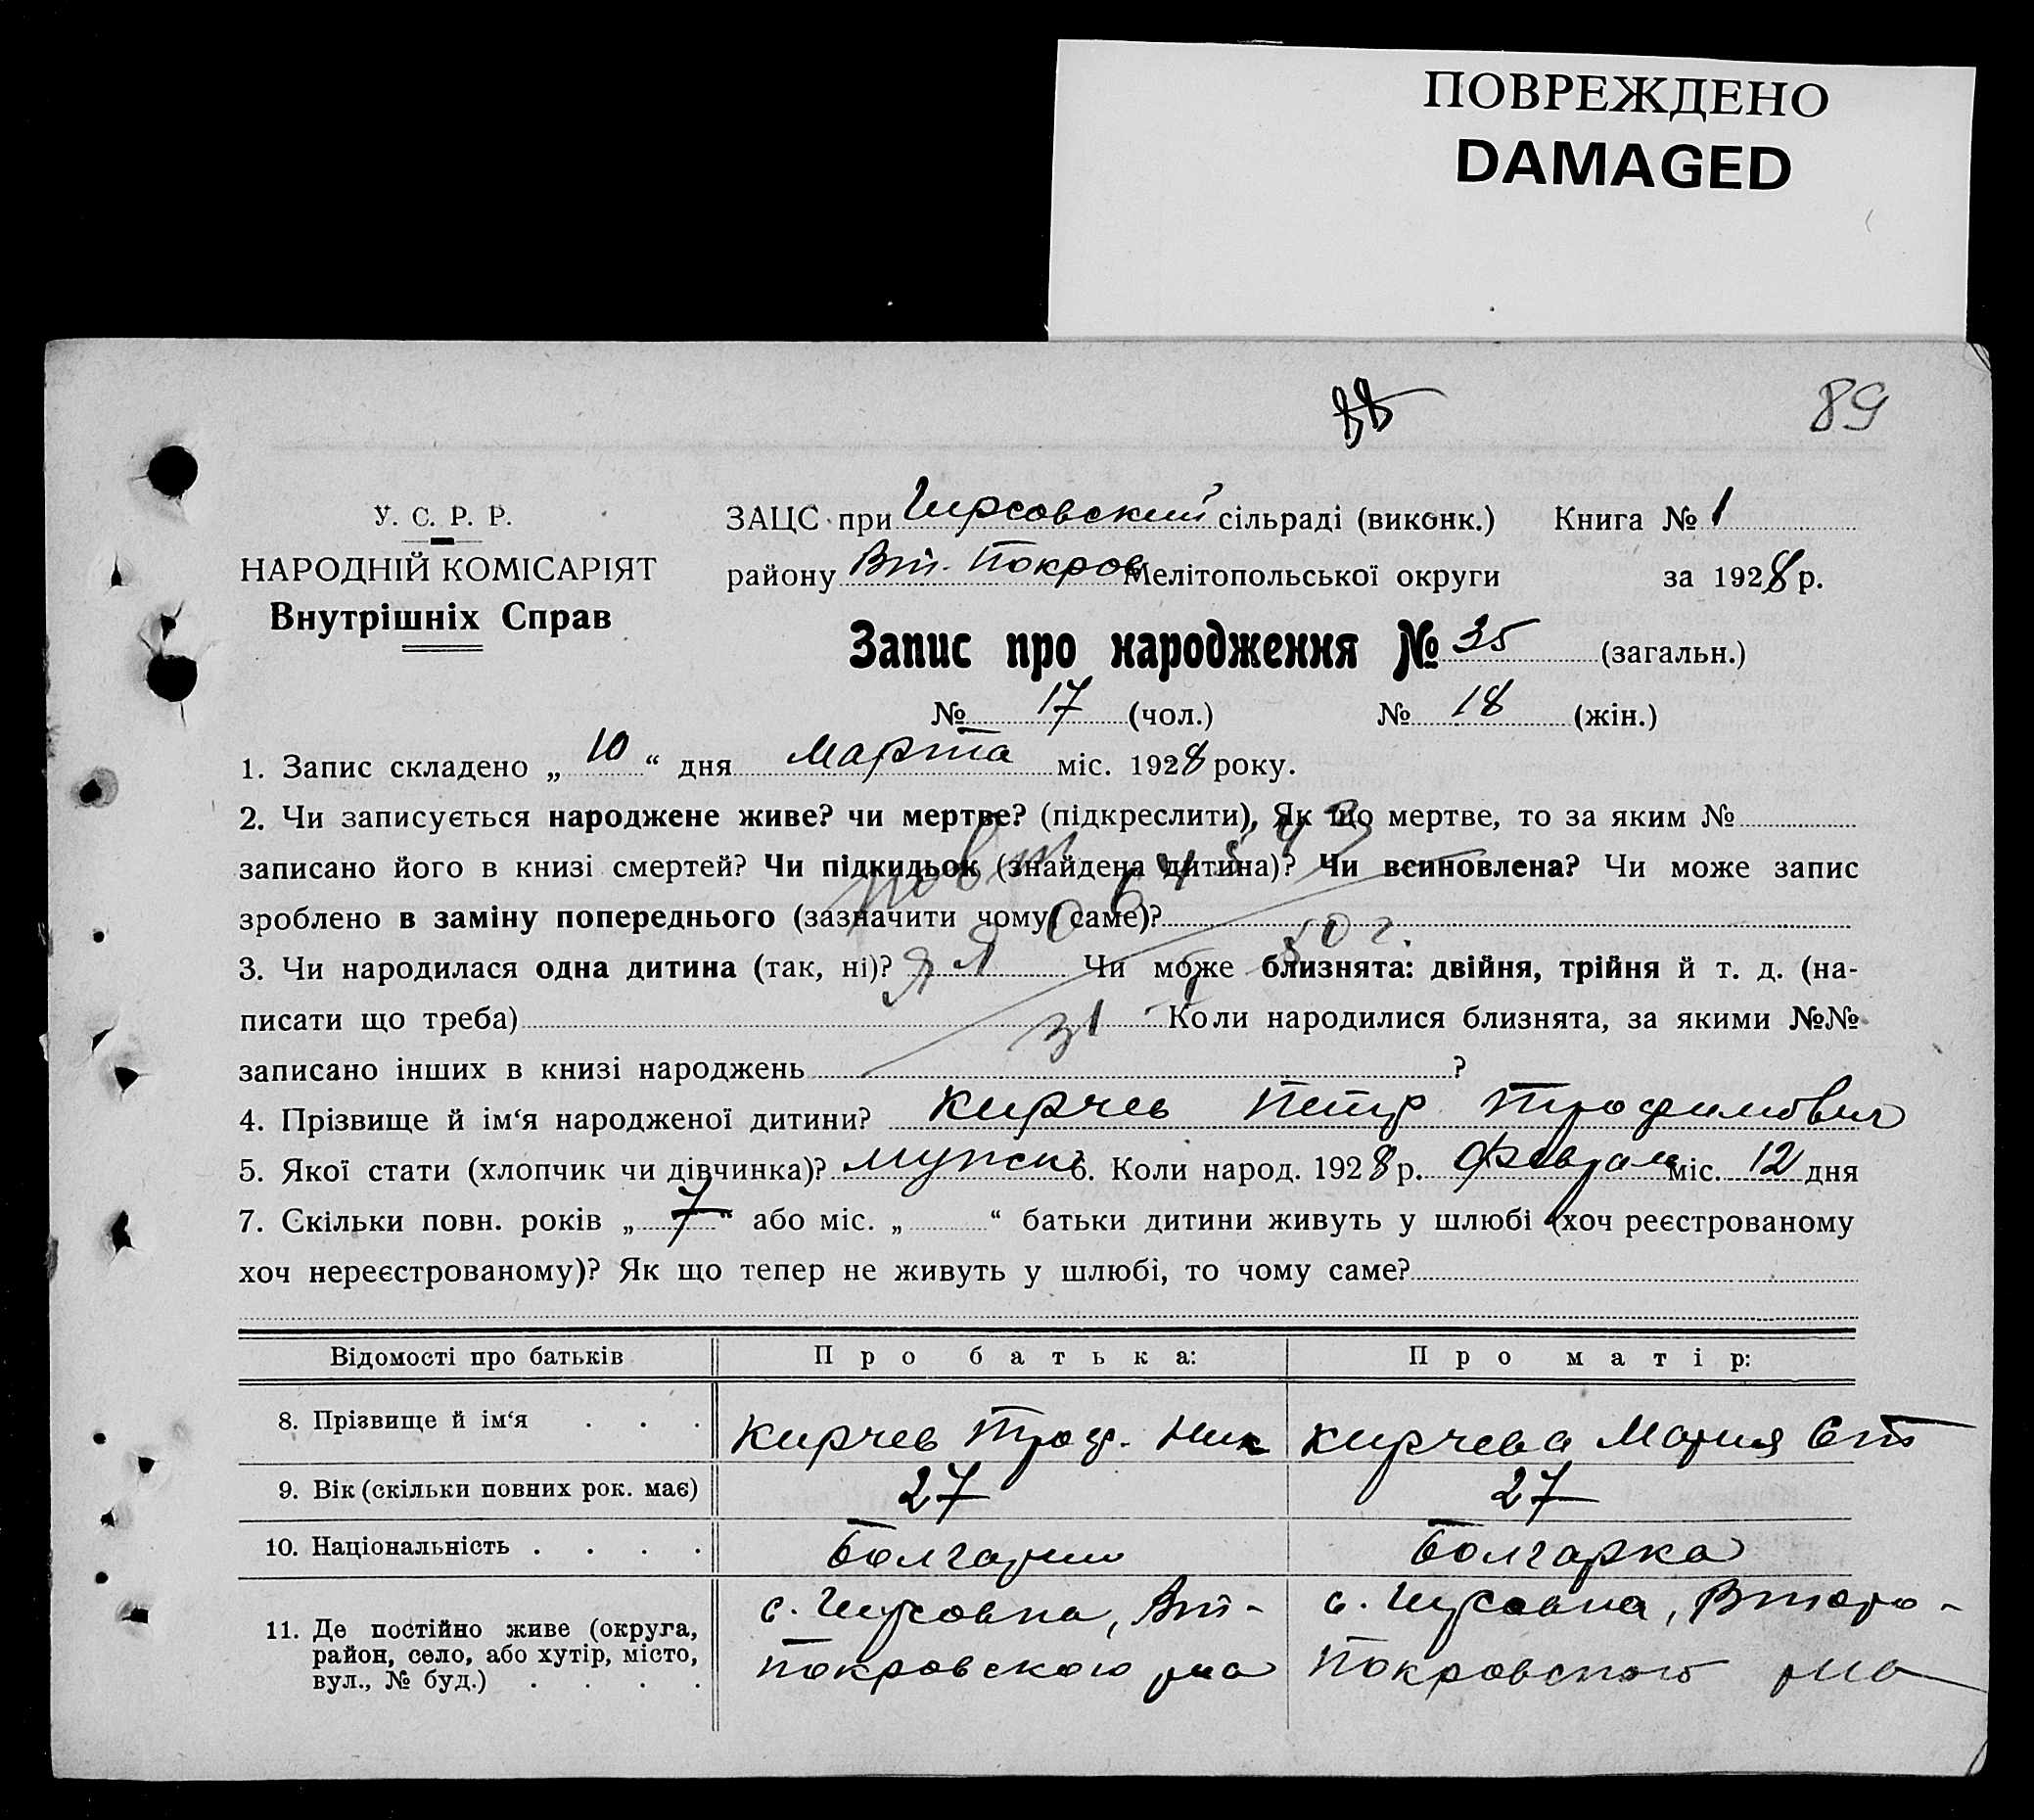 ПОВРЕЖДЕНО
DAMAGED
88
89
У. С. Р. Р.
НАРОДНІЙ КОМІСАРІЯТ
Внутрішніх Справ
ЗАЦС при Гирсовский сільраді (виконк.) Книга № 1
району Вт. Покров Мелітопольської округи за 1928 р.
Запис про народження № 35 (загальн.)
№ 17 (чол.) № 18 (жін.)
1. Запис складено „ 10 “ дня Марта міс. 1928 року.
2. Чи записується народжене живе? чи мертве? (підкреслити), Як що мертве, то за яким №
записано його в книзі смертей? Чи підкидьок (знайдена дитина)? Чи всиновлена? Чи може запис
зроблено в заміну попереднього (зазначити чому саме)?
3. Чи народилася одна дитина (так, ні)? Чи може близнята: двійня, трійня й т. д. (на-
писати що треба) Коли народилися близнята, за якими №№
записано інших в книзі народжень ?
4. Прізвище й ім‘я народженої дитини? Кирчев Петр Трофимович
5. Якої стати (хлопчик чи дівчинка)? мужск 6. Коли народ. 1928 р. Февраля міс. 12 дня
7. Скільки повн. років „ 7 “ або міс. „ “ батьки дитини живуть у шлюбі (хоч реєстрованому
хоч нереєстрованому)? Як що тепер не живуть у шлюбі, то чому саме?
Відомості про батьків Про батька: Про матір:
8. Прізвище й ім‘я . . . Кирчев Троф. Ник Кирчева Мария Ст
9. Вік (скільки повних рок. має) 27 27
10. Національність . . . . Болгарин Болгарка
11. Де постійно живе (округа, с. Гирсовка, Вт- с. Гирсовка, Второ-
район, село, або хутір, місто, Покровского р-на Покровского р-на
вул., № буд.) . . . .